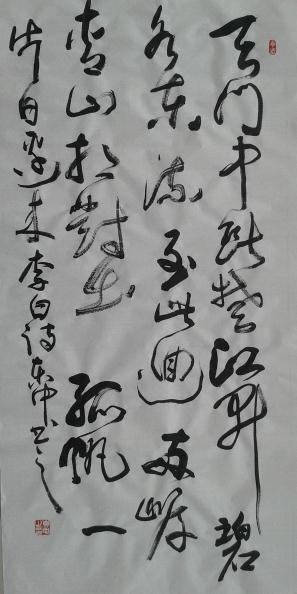 天门中断楚江开碧
水东流至此迴两岸
青山相對出孤帆一
片日边来李白诗书之